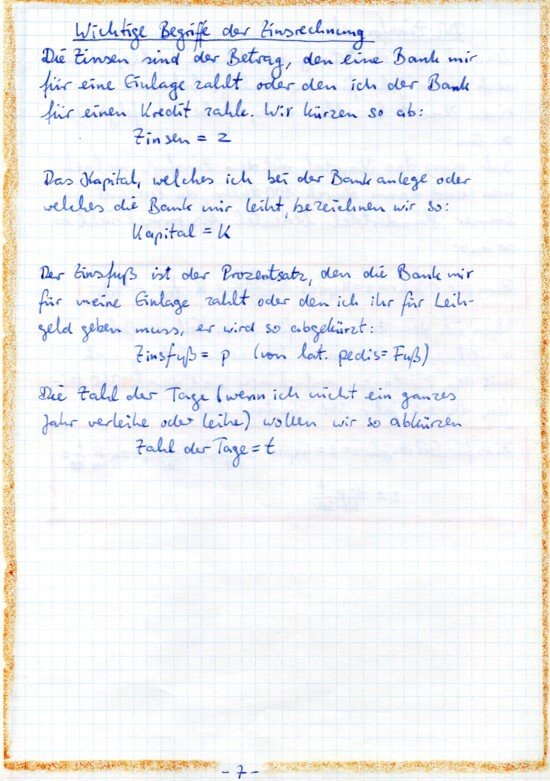 Wichtige Begriffe der Zinsrechnung
Die Zinsen sind der Betrag, den eine Bank mir
für eine Einlage zahlt oder den ich der Bank
für einen Kredit zahle. Wir kürzen so ab:
Zinsen = z
Das Kapital, welches ich bei der Bank anlege oder
welches die Bank mir leiht, bezeichnen wir so:
Kapital = K
Der Zinsfuß ist der Prozentsatz, den die Bank mir
für meine Einlage zahlt oder den ich ihr für Leih-
geld geben muss, er wird so abgekürzt:
Zinsfuß = p (von lat. pedis = Fuß)
Die Zahl der Tage (wenn ich nicht ein ganzes
Jahr verleihe oder leihe) wollen wir so abkürzen
Zahl der Tage = t
- 7 -